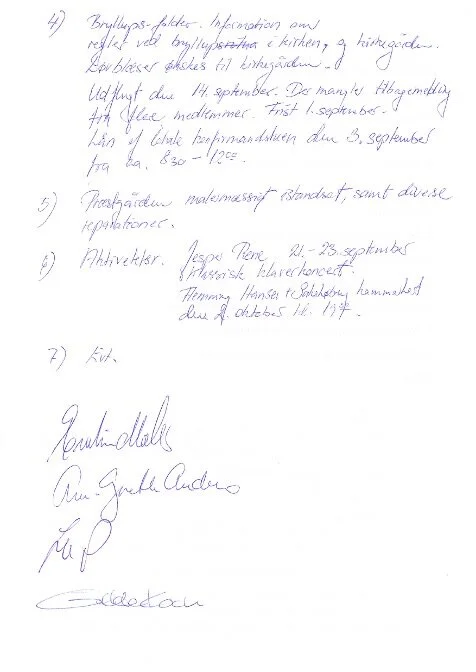 4) Bryllups-folder. Information om
regler ved bryllups i kirken, og kirkegården.
Løvblæser ønskes til kirkegården.
Udflugt den 14. september. Der mangler tilbagemelding
fra flere medlemmer. Frist 1. september.
Lån af lokale konfirmandstuen den 3. september
fra ca. 830 - 1200.
5) Præstegården malermæssigt istandsat, samt diverse
reparationer.
6) Aktiviteter. Jesper 21. - 23. september
klassisk klaverkoncert.
Flemming Hansen +
den oktober kl.
7) Evt.